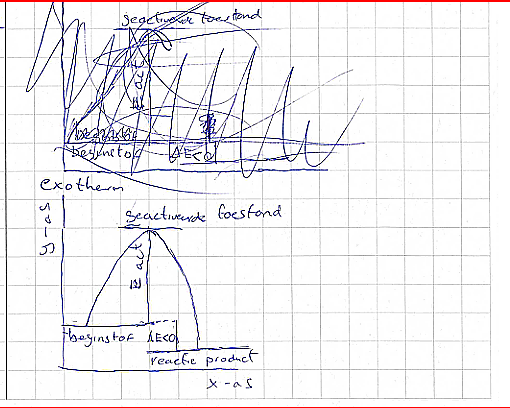 geactiveerde toestand
E act
beginstof
beginstof ΔE<0
exotherm
y-as
geactiveerde toestand
E act
beginstof ΔE<0
reactie product
x-as